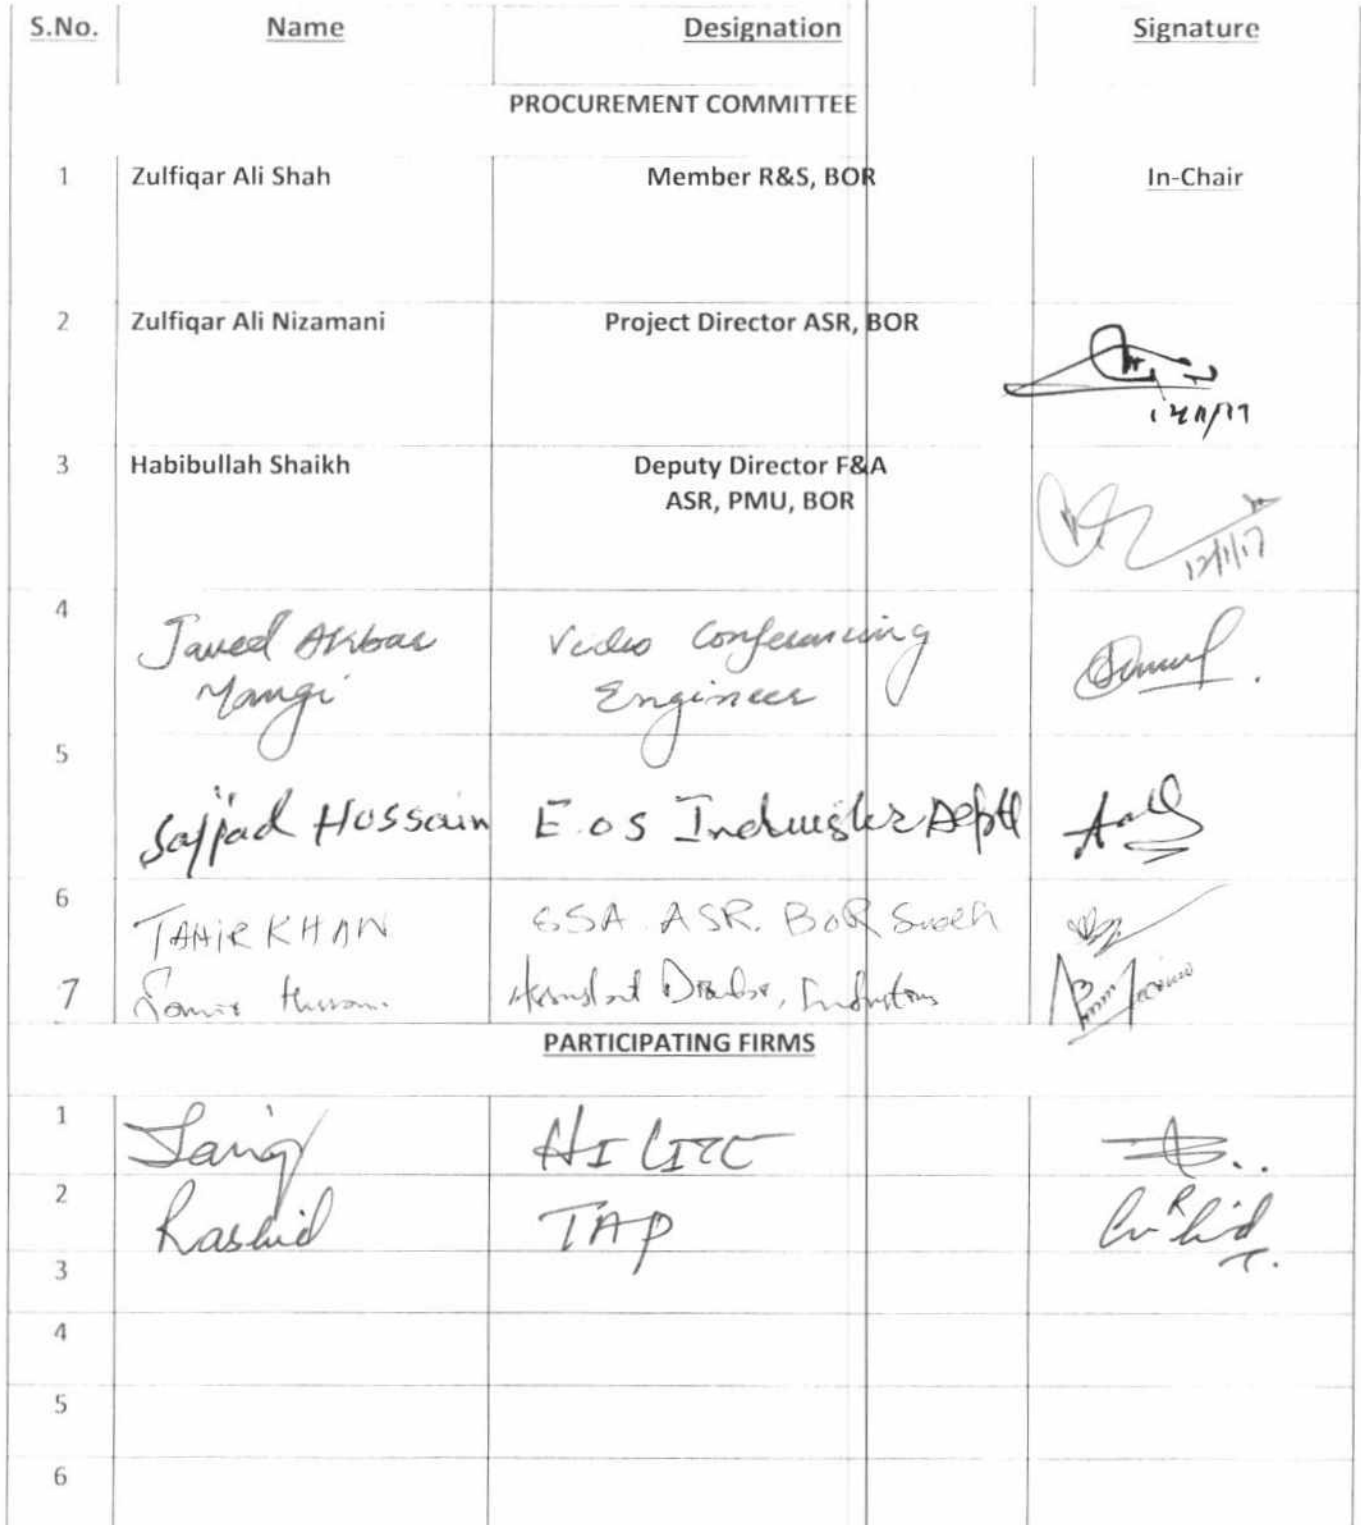 S.No. Name Designation Signature
PROCUREMENT COMMITTEE
1 Zulfiqar Ali Shah Member R&S, BOR In-Chair
2 Zulfiqar Ali Nizamani Project Director ASR, BOR
3 Habibullah Shaikh Deputy Director F&A
ASR, PMU, BOR
12/1/17
4
Javed Akbar Video Conferencing
Mangi Engineer
5
Sajjad Hossain E.o S Dept
6
TAHIR KHAN SSA ASR. BOR
7 Hussain Assistant Director, Industries
PARTICIPATING FIRMS
1
Tariq
2
Rashid TAP
3
4
5
6